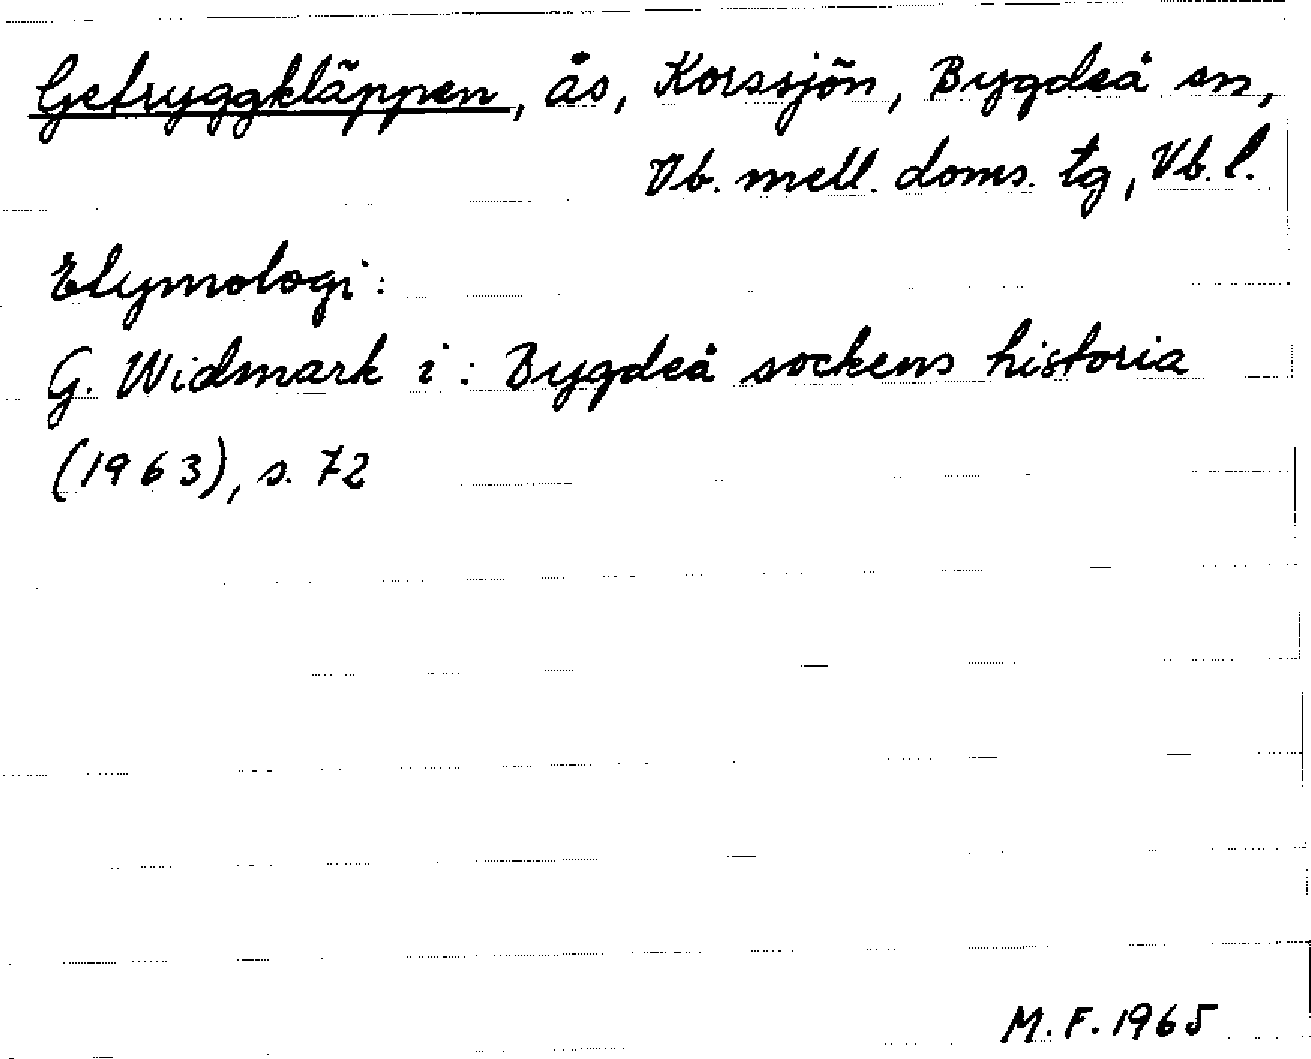 Getryggkläppen, ås, Korssjön, Bygdeå sn,
Vb. mell. doms. tg, Vb. l.
Etymologi:
G. Widmark i: Bygdeå sockens historia
(1963), s. 72
M.F. 1965